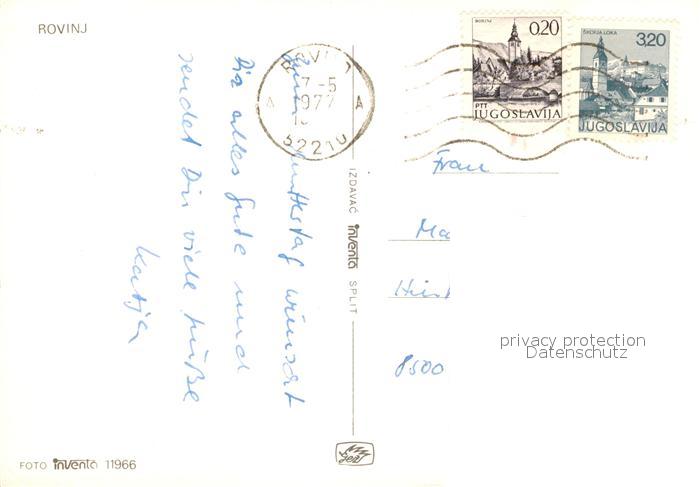 ROVINJ
Zum Muttertag wünscht
Dir alles Gute und
sendet Dir viele Grüße
Katja
ROVINJ
7-5
1977
52210
A A
BOHINJ
0.20
PTT
JUGOSLAVIJA
ŠKOFJA LOKA
3,20
JUGOSLAVIJA
Frau
Ma
8500
IZDAVAČ inventa SPLIT
privacy protection
Datenschutz
FOTO inventa 11966